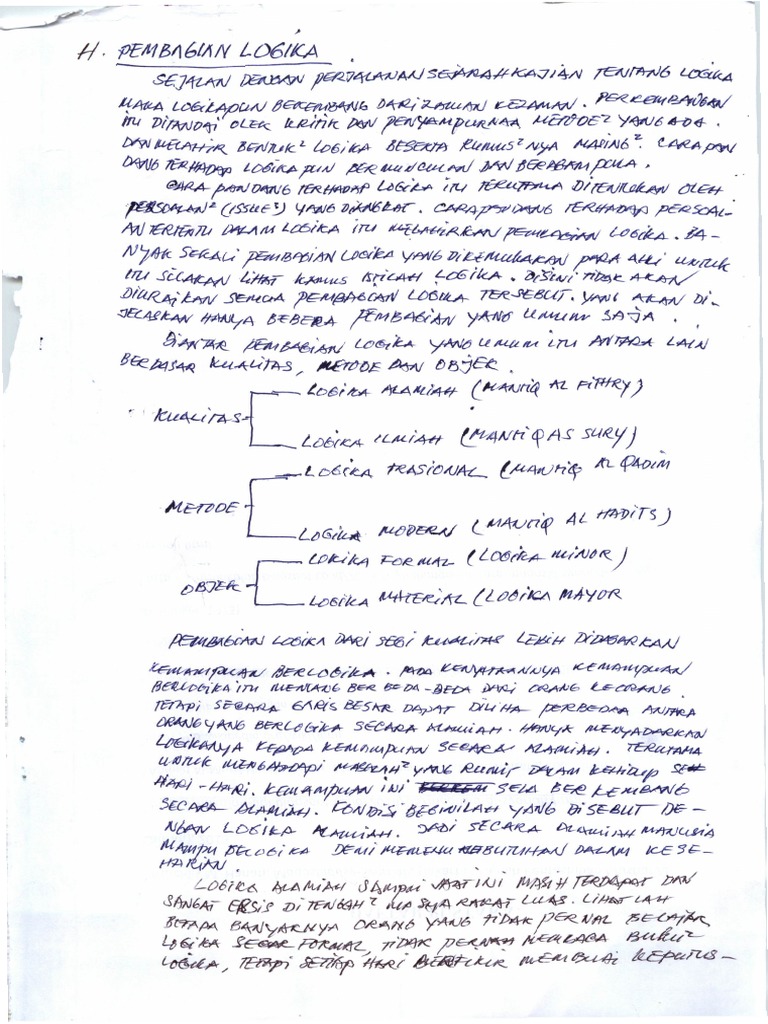 H. PEMBAGIAN LOGIKA
SEJALAN DENGAN PERJALANAN SEJARAH KAJIAN TENTANG LOGIKA
MAKA LOGIKAPUN BEKEMBANG DARI ZAMAN KEZAMAN. PERKEMBANGAN
ITU DITANDAI OLEK KRITIK DAN PENYAMPURNAA METODE² YANG ADA.
DAN MELAHIR BENTUK² LOGIKA BESERTA RUMUS²NYA MASING². CARA PAN
DANG TERHADAP LOGIKA PUN BERMUNCULAN DAN BERAGAM PULA.
CARA PANDANG TERHADAP LOGIKA ITU TERUTAMA DITENTUKAN OLEH
PERSOALAN² (ISSUES) YANG DIANGKAT. CARA PANDANG TERHADAP PERSOAL-
AN TERTENTU DALAM LOGIKA ITU MELAHIRKAN PEMBAGIAN LOGIKA. BA-
NYAK SEKALI PEMBAGIAN LOGIKA YANG DIKEMUKAKAN PARA AHLI UNTUK
ITU SILAKAN LIHAT KAMUS ISTILAH LOGIKA. DISINI TIDAK AKAN
DIURAIKAN SEMUA PEMBAGIAN LOGIKA TERSEBUT. YANG AKAN DI-
JELASKAN HANYA BEBERA PEMBAGIAN YANG UMUM SAJA.
DIANTAR PEMBAGIAN LOGIKA YANG UMUM ITU ANTARA LAIN
BERDASAR KUALITAS, METODE DAN OBJEK.
LOGIKA ALAMIAH (MANTIQ AL FITHRY)
KUALITAS
LOGIKA ILMIAH (MANTIQ AS SURY)
LOGIKA TRASIONAL (MANTIQ AL QADIM
METODE
LOGIKA MODERN (MANTIQ AL HADITS)
LOKIKA FORMAL (LOGIKA MINOR)
OBJEK
LOGIKA MATERIAL (LOGIKA MAYOR
PEMBAGIAN LOGIKA DARI SEGI KUALITAS LEBIH DIDASARKAN
KEMAMPUAN BERLOGIKA. PADA KENYATAANNYA KEMAMPUAN
BERLOGIKA ITU MEMANG BERBEDA-BEDA DARI ORANG KEORANG.
TETAPI SECARA GARIS BESAR DAPAT DILIHA PERBEDAA ANTARA
ORANG YANG BERLOGIKA SECARA ALAMIAH. HANYA MENYADARKAN
LOGIKANYA KEPADA KEMAMPUAN SECARA ALAMIAH. TERUTAMA
UNTUK MENGHADAPI MASALAH² YANG RUMIT DALAM KEHIDUP SE
HARI-HARI. KEMAMPUAN INI SELA BERKEMBANG
SECARA ALAMIAH. KONDISI BEGINILAH YANG DISEBUT DE-
NGAN LOGIKA ALAMIAH. JADI SECARA ALAMIAH MANUSIA
MAMPU BELOGIKA DEMI MEMENU KEBUTUHAN DALAM KESE-
HARIAN
LOGIKA ALAMIAH SAMPAI SAAT INI MASIH TERDAPAT DAN
SANGAT EKSIS DI TENGAH² MASYARAKAT LUAS. LIHATLAH
BETAPA BANYARNYA ORANG YANG TIDAK PERNAH BELAJAR
LOGIKA SECAR FORMAL, TIDAK PERNAH MEMBACA BUKU²
LOGIKA, TETAPI SETIAP HARI BERFIKIR MEMBUAT KEPUTUS-